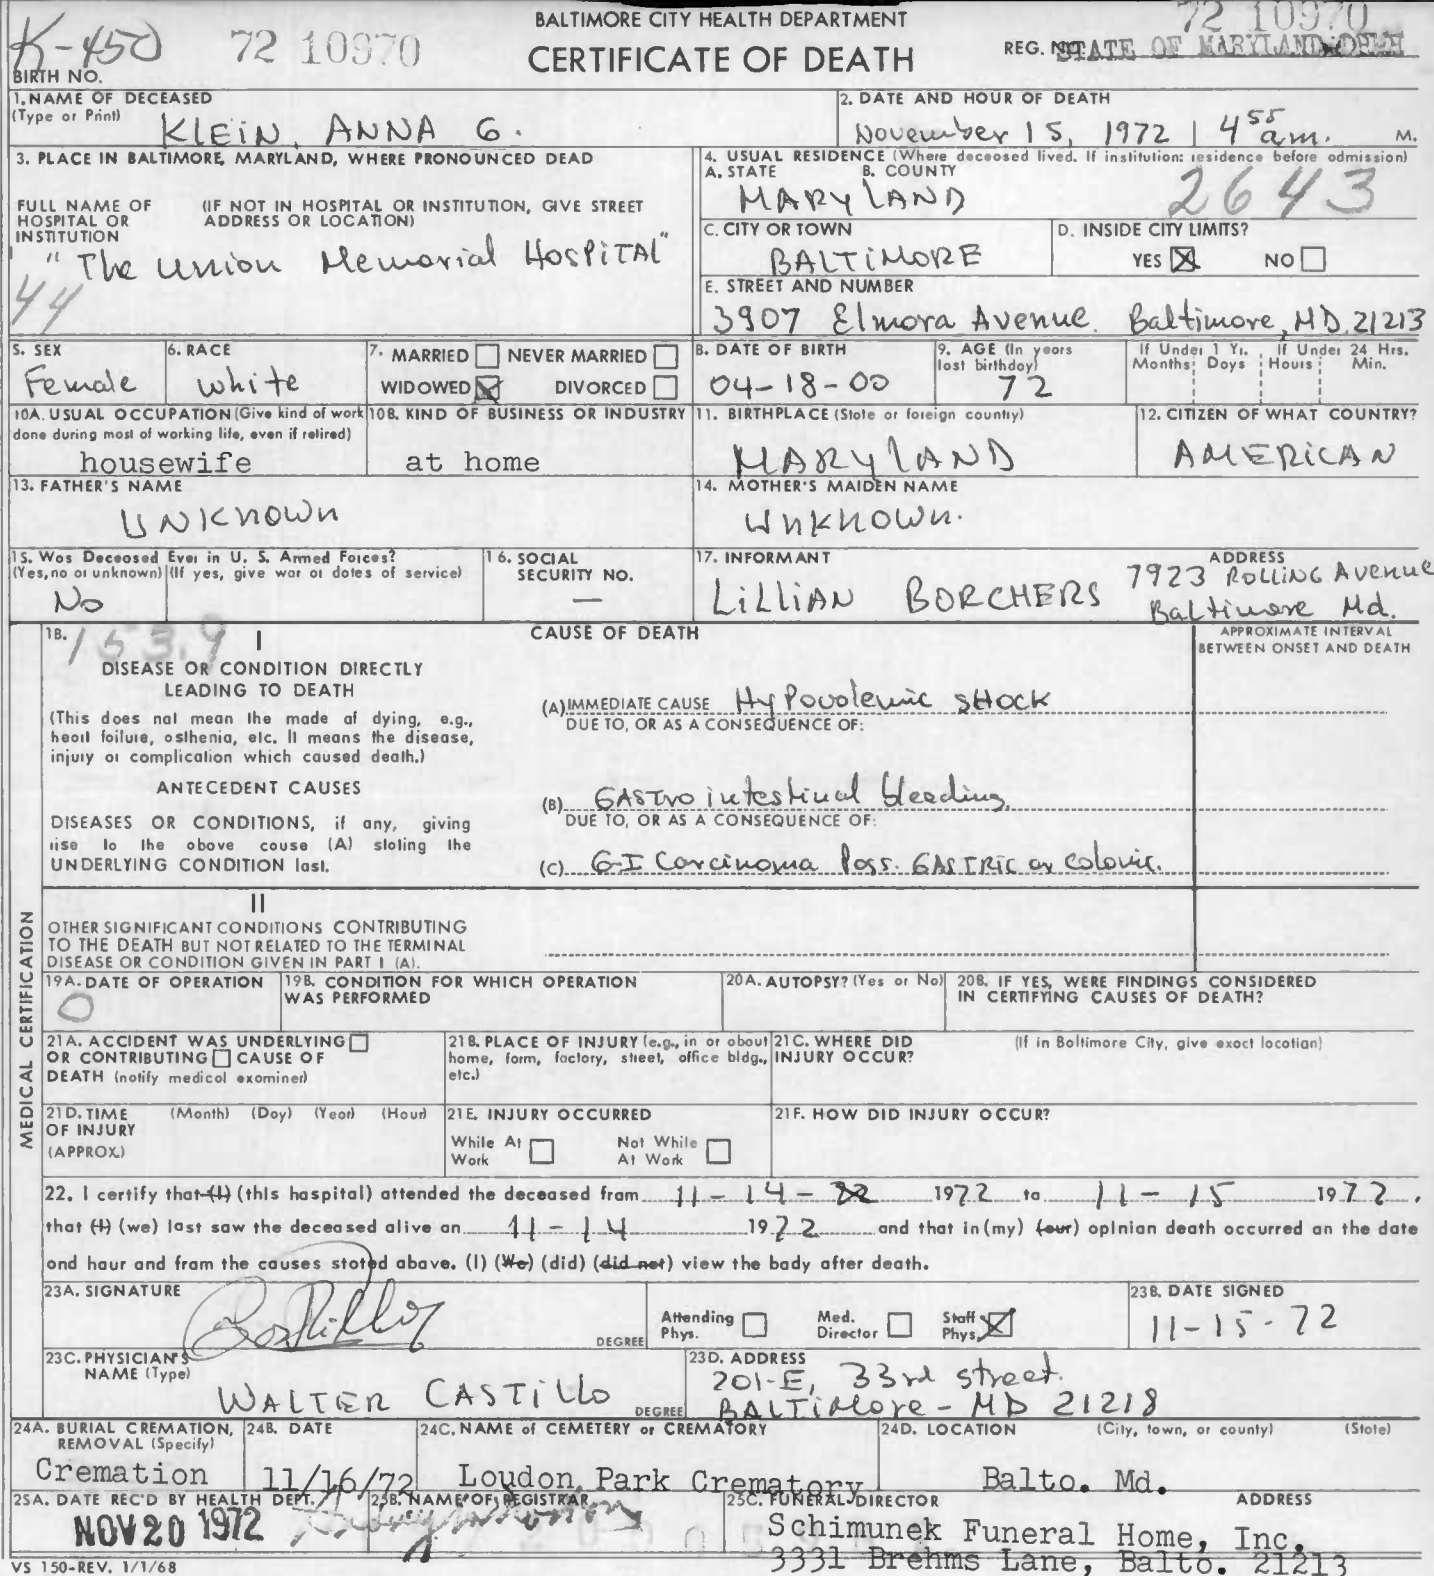 BALTIMORE CITY HEALTH DEPARTMENT
CERTIFICATE OF DEATH
K-450
72 10970
72 10970
REG. NO.
STATE OF MARYLAND-DHMH
BIRTH NO.
1. NAME OF DECEASED
(Type or Print)
KLEIN, ANNA G.
2. DATE AND HOUR OF DEATH
November 15, 1972 | 4 55 a.m. M.
3. PLACE IN BALTIMORE, MARYLAND, WHERE PRONOUNCED DEAD
FULL NAME OF HOSPITAL OR INSTITUTION
(IF NOT IN HOSPITAL OR INSTITUTION, GIVE STREET ADDRESS OR LOCATION)
"The Union Memorial HOSPITAL"
44
4. USUAL RESIDENCE (Where deceased lived. If institution: residence before admission)
A. STATE B. COUNTY
MARYLAND
2643
C. CITY OR TOWN
BALTIMORE
D. INSIDE CITY LIMITS?
YES ☒ NO ☐
E. STREET AND NUMBER
3907 Elmora Avenue. Baltimore, MD. 21213
5. SEX
Female
6. RACE
white
7. MARRIED ☐ NEVER MARRIED ☐
WIDOWED ☒ DIVORCED ☐
8. DATE OF BIRTH
04-18-00
9. AGE (In years last birthday)
72
If Under 1 Yr. Months Days
If Under 24 Hrs. Hours Min.
10A. USUAL OCCUPATION (Give kind of work done during most of working life, even if retired)
housewife
10B. KIND OF BUSINESS OR INDUSTRY
at home
11. BIRTHPLACE (State or foreign country)
MARYLAND
12. CITIZEN OF WHAT COUNTRY?
AMERICAN
13. FATHER'S NAME
UNKNOWN
14. MOTHER'S MAIDEN NAME
UNKNOWN.
15. Was Deceased Ever in U. S. Armed Forces?
(Yes, no or unknown) (If yes, give war or dates of service)
No
16. SOCIAL SECURITY NO.
—
17. INFORMANT
LILLIAN BORCHERS
ADDRESS
7923 ROLLING Avenue
Baltimore Md.
18.
153.9
I
CAUSE OF DEATH
APPROXIMATE INTERVAL
BETWEEN ONSET AND DEATH
DISEASE OR CONDITION DIRECTLY
LEADING TO DEATH
(This does not mean the mode of dying, e.g.,
heart failure, asthenia, etc. It means the disease,
injury or complication which caused death.)
(A) IMMEDIATE CAUSE Hypovolemic SHOCK
DUE TO, OR AS A CONSEQUENCE OF:
ANTECEDENT CAUSES
DISEASES OR CONDITIONS, if any, giving
rise to the above cause (A) stating the
UNDERLYING CONDITION last.
(B) GASTro intestinal bleeding.
DUE TO, OR AS A CONSEQUENCE OF:
(C) G-I Carcinoma Poss. GASTRIC or colonic.
II
OTHER SIGNIFICANT CONDITIONS CONTRIBUTING
TO THE DEATH BUT NOT RELATED TO THE TERMINAL
DISEASE OR CONDITION GIVEN IN PART I (A).
MEDICAL CERTIFICATION
19A. DATE OF OPERATION
0
19B. CONDITION FOR WHICH OPERATION WAS PERFORMED
20A. AUTOPSY? (Yes or No)
20B. IF YES, WERE FINDINGS CONSIDERED IN CERTIFYING CAUSES OF DEATH?
21A. ACCIDENT WAS UNDERLYING ☐
OR CONTRIBUTING ☐ CAUSE OF
DEATH (notify medical examiner)
21B. PLACE OF INJURY (e.g., in or about
home, farm, factory, street, office bldg.,
etc.)
21C. WHERE DID INJURY OCCUR?
(If in Baltimore City, give exact location)
21D. TIME OF INJURY (APPROX.)
(Month) (Day) (Year) (Hour)
21E. INJURY OCCURRED
While At Work ☐ Not While At Work ☐
21F. HOW DID INJURY OCCUR?
22. I certify that (I) (this hospital) attended the deceased from 11-14-22 1972 to 11-15 1972,
that (I) (we) last saw the deceased alive on 11-14 1972 and that in (my) (our) opinion death occurred on the date
and hour and from the causes stated above. (I) (We) (did) (did not) view the body after death.
23A. SIGNATURE
DEGREE
Attending Phys. ☐ Med. Director ☐ Staff Phys. ☒
23B. DATE SIGNED
11-15-72
23C. PHYSICIAN'S NAME (Type)
WALTER CASTILLO
DEGREE
23D. ADDRESS
201-E, 33rd street.
BALTIMORE - MD 21218
24A. BURIAL CREMATION, REMOVAL (Specify)
Cremation
24B. DATE
11/16/72
24C. NAME of CEMETERY or CREMATORY
Loudon Park Crematory
24D. LOCATION (City, town, or county) (State)
Balto. Md.
25A. DATE REC'D BY HEALTH DEPT.
NOV 20 1972
25B. NAME OF REGISTRAR
25C. FUNERAL DIRECTOR ADDRESS
Schimunek Funeral Home, Inc.
3331 Brehms Lane, Balto. 21213
VS 150-REV. 1/1/68